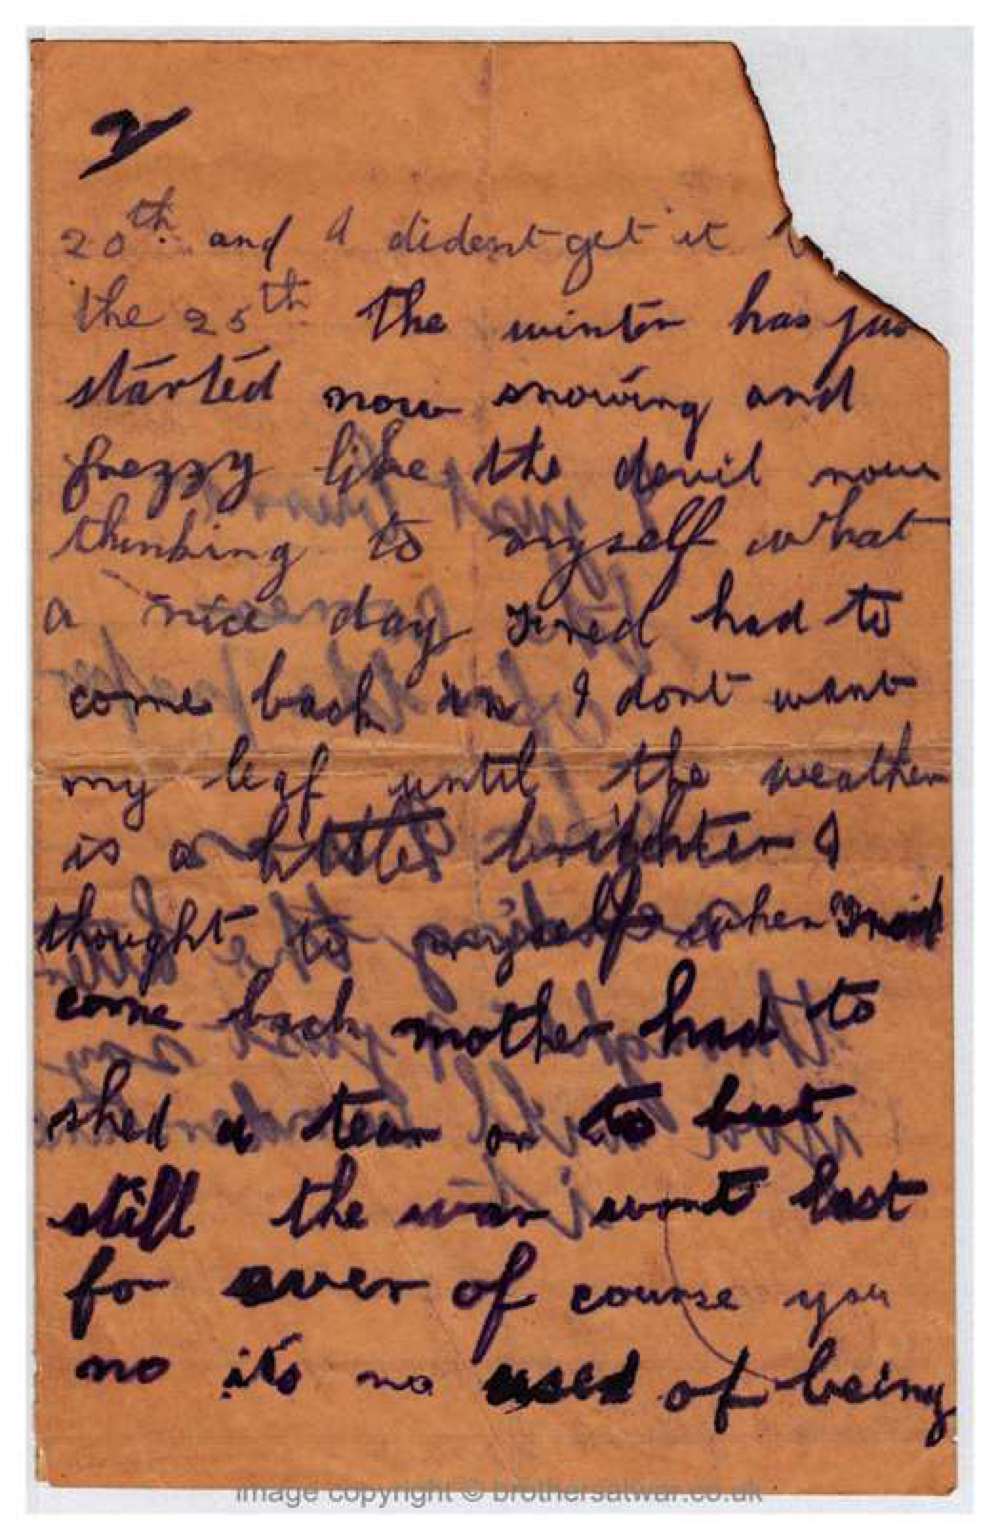 2
20th and I dident get it
the 25th The winter has jus
started now snowing and
frezzy like the devil now
thinking to myself what
a nice day Fred had to
come back in I dont want
my leaf until the weather
is a little brighter I
thought to myself when
come back mother had to
shed a tear or to but
still the war wont last
for ever of course you
no its no used of being
image copyright © brothersatwar.co.uk